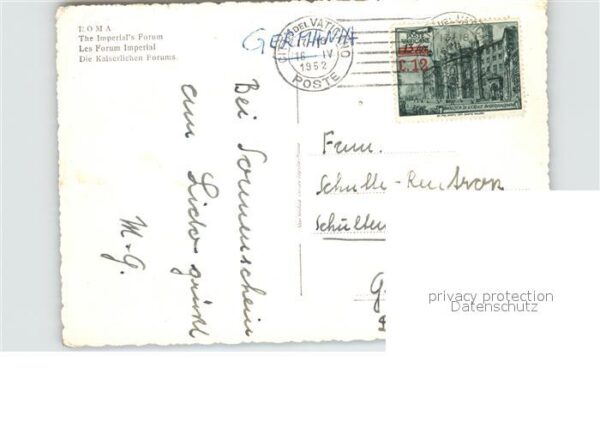 ROMA
The Imperial's Forum
Les Forum Imperial
Die Kaiserlichen Forums.
GERMANIA
CITTÀ DEL VATICANO
16 IV
1952
POSTE
L.12
Bei Sonnenschein
am Lido grüßt
M. G.
Fam.
Schulte-Rentrop
Schulten
G
privacy protection
Datenschutz